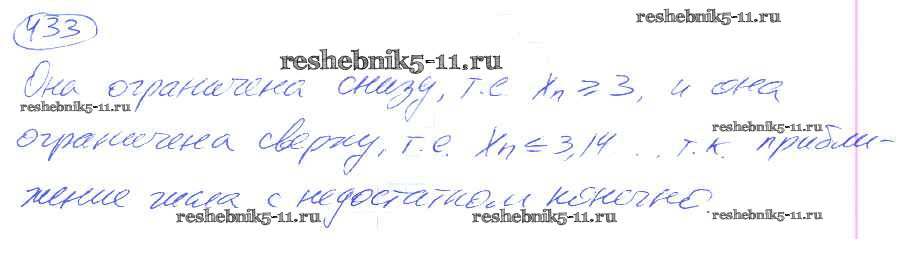 433
reshebnik5-11.ru
reshebnik5-11.ru
Она ограничена снизу, т.е Xn ⩾ 3, и она
reshebnik5-11.ru
reshebnik5-11.ru
ограничена сверху, т.е. Xn ≤ 3,14 .. т.к. прибли-
жение числа с недостатком конечно
reshebnik5-11.ru
reshebnik5-11.ru
reshebnik5-11.ru